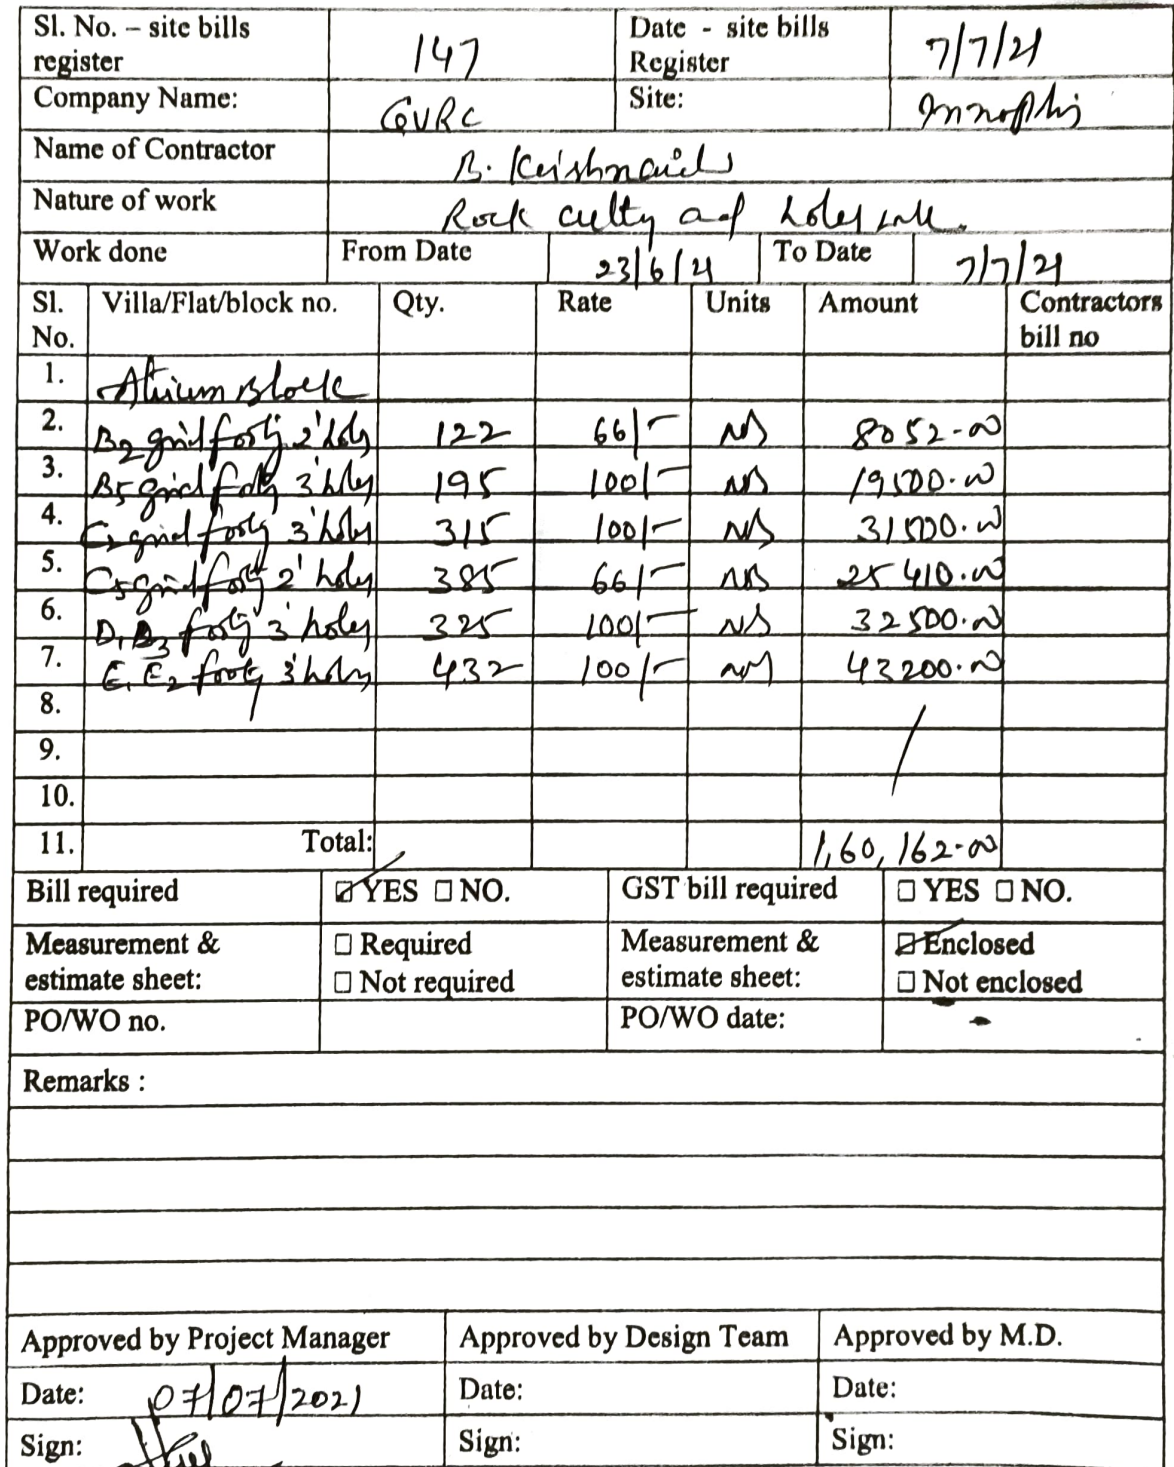 Sl. No. – site bills register 147 Date - site bills Register 7/7/21
Company Name: GVRC Site: Innopolis
Name of Contractor B. Krishnaiah
Nature of work Rock cutty and holes
Work done From Date 23/6/21 To Date 7/7/21
Sl. No. Villa/Flat/block no. Qty. Rate Units Amount Contractors bill no
1. Atrium Block
2. B2 grid footg 2' holes 122 66/- NS 8052-00
3. B5 grid footg 3' holes 195 100/- NS 19500.00
4. C2 grid footg 3' holes 315 100/- NS 31500.00
5. C5 grid footg 2' holes 385 66/- NS 25410.00
6. D1 D3 footg 3' holes 325 100/- NS 32500.00
7. E1 E2 footg 3' holes 432 100/- 43200.00
8.
9.
10.
11. Total: 1,60,162-00
Bill required ☑ YES ☐ NO. GST bill required ☐ YES ☐ NO.
Measurement & estimate sheet: ☐ Required ☐ Not required Measurement & estimate sheet: ☑ Enclosed ☐ Not enclosed
PO/WO no. PO/WO date: -
Remarks :
Approved by Project Manager Approved by Design Team Approved by M.D.
Date: 07/07/2021 Date: Date:
Sign: Sign: Sign: